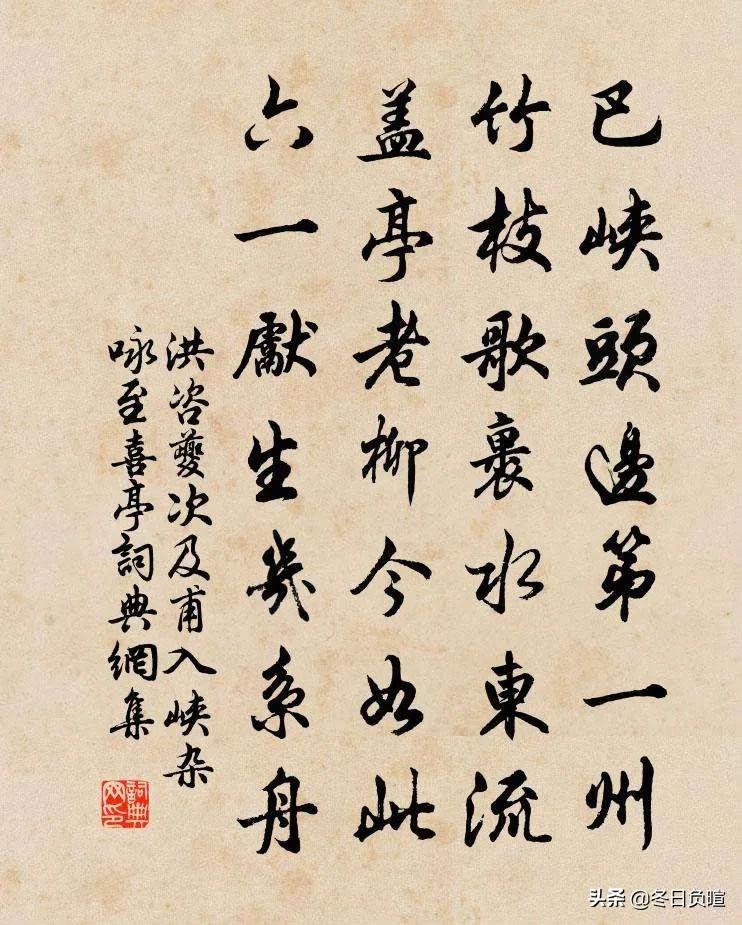 巴峽頭邊第一州
竹枝歌裏水東流
盖亭老柳今如此
六一獻生幾系舟
洪咨夔次及甫入峽杂
咏至喜亭詞典網集
詞典
网印
头条 @冬日负暄